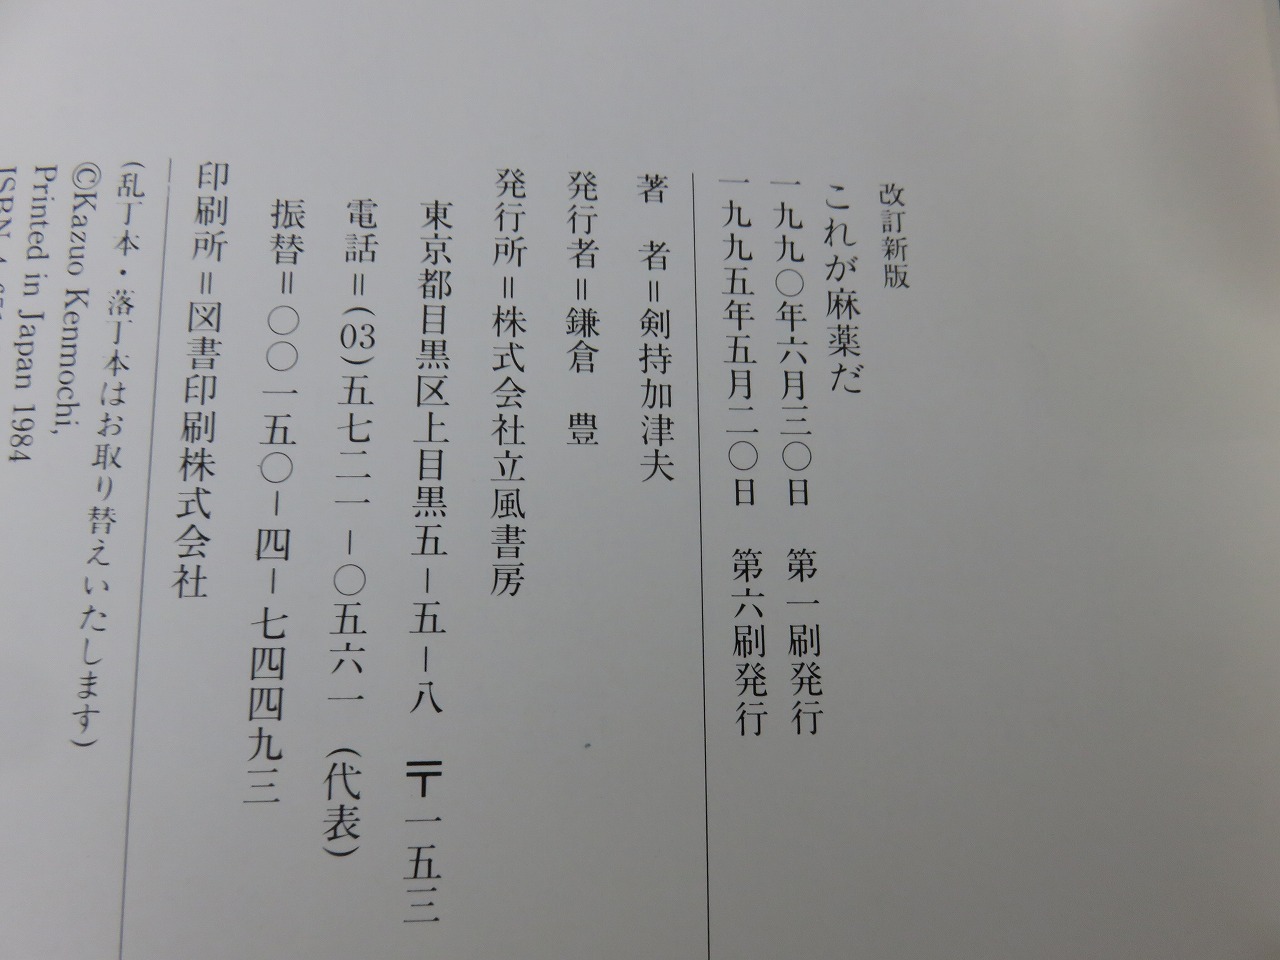 改訂新版
これが麻薬だ
一九九〇年六月三〇日 第一刷発行
一九九五年五月二〇日 第六刷発行
著 者＝剣持加津夫
発行者＝鎌倉 豊
発行所＝株式会社立風書房
東京都目黒区上目黒五−五−八 〒一五三
電話＝(03)五七二一−〇五六一 (代表)
振替＝〇〇一五〇−四−七四四九三
印刷所＝図書印刷株式会社
(乱丁本・落丁本はお取り替えいたします)
©Kazuo Kenmochi,
Printed in Japan 1984
ISBN